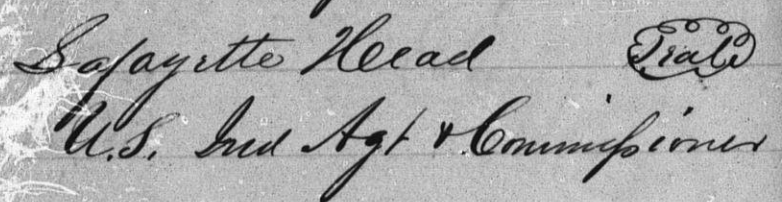 Lafayette Head Seal
U.S. Ind Agt & Commissioner